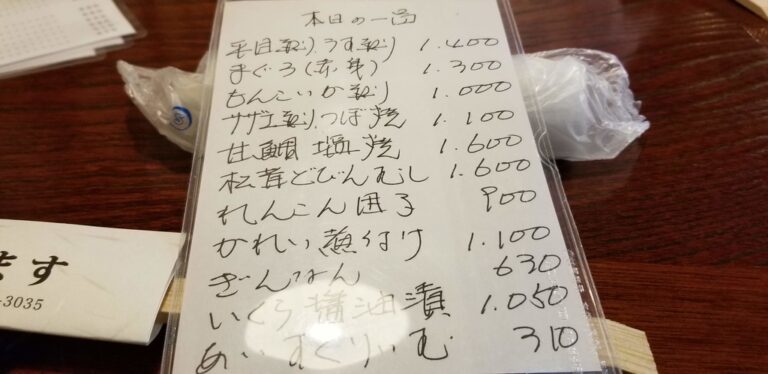 本日の一品
平目造り.うす造り 1.400
まぐろ(赤身) 1.300
もんこいか造り 1.000
サザエ造り.つぼ焼 1.100
甘鯛 塩焼 1.600
松茸どびんむし 1.600
れんこん団子 900
かれい煮付け 1.100
ぎんなん 630
いくら醤油漬 1.050
あいすくりいむ 310
ます
-3035